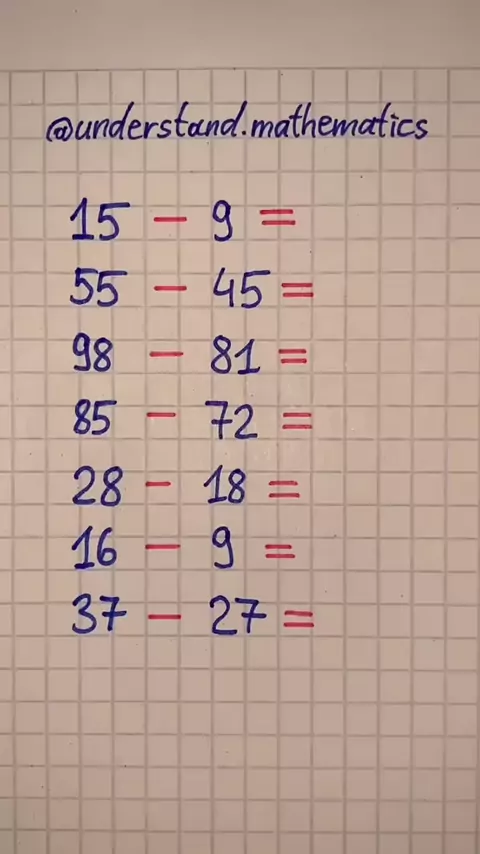 @understand.mathematics
15 − 9 =
55 − 45 =
98 − 81 =
85 − 72 =
28 − 18 =
16 − 9 =
37 − 27 =